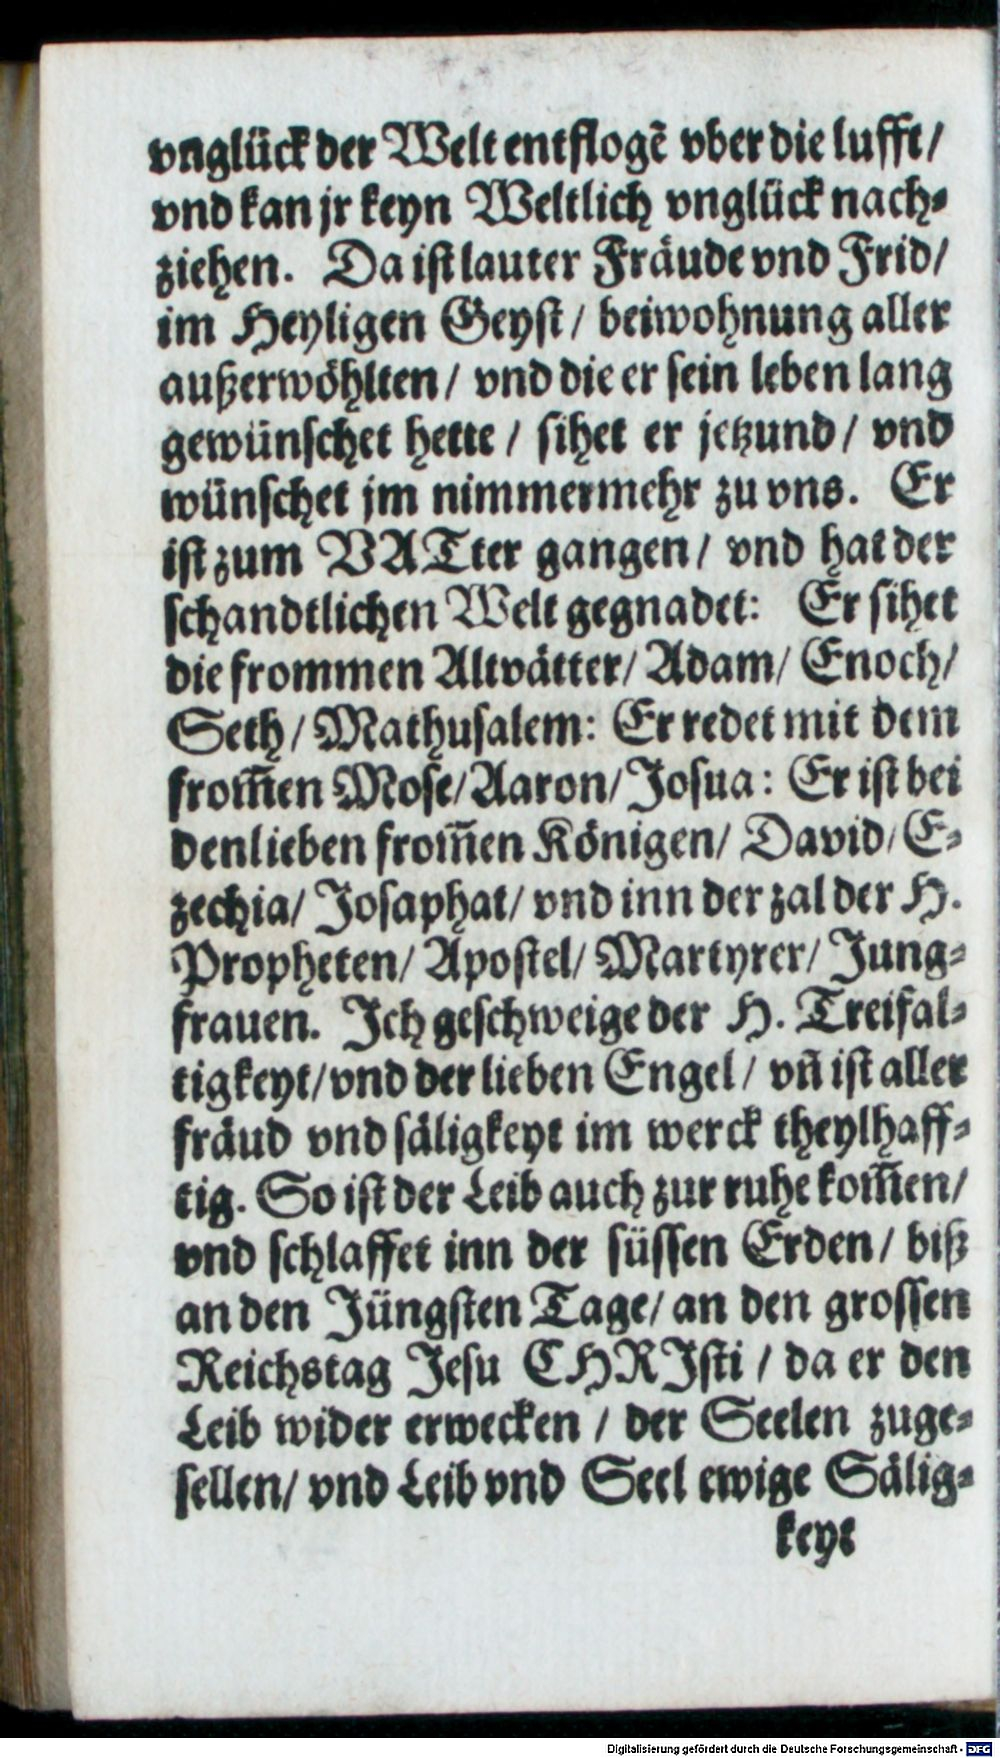 vnglück der Welt entflogẽ vber die lufft/
vnd kan jr keyn Weltlich vnglück nach⸗
ziehen. Da ist lauter Fräude vnd Frid/
im Heyligen Geyst / beiwohnung aller
außerwöhlten / vnd die er sein leben lang
gewünschet hette / sihet er jetzund / vnd
wünschet jm nimmermehr zu vns. Er
ist zum VATter gangen / vnd hat der
schandtlichen Welt gegnadet: Er sihet
die frommen Altvätter/ Adam/ Enoch/
Seth / Mathusalem: Er redet mit dem
from̃en Mose/ Aaron/ Josua: Er ist bei
den lieben from̃en Königen/ David/ E⸗
zechia/ Josaphat/ vnd inn der zal der H.
Propheten/ Apostel/ Martyrer/ Jung⸗
frauen. Ich geschweige der H. Treifal⸗
tigkeyt/ vnd der lieben Engel / vñ ist aller
fräud vnd säligkeyt im werck theylhaff⸗
tig. So ist der Leib auch zur ruhe kom̃en/
vnd schlaffet inn der süssen Erden / biß
an den Jüngsten Tage/ an den grossen
Reichstag Jesu CHRIsti / da er den
Leib wider erwecken / der Seelen zuge⸗
sellen/ vnd Leib vnd Seel ewige Sälig⸗
keyt
Digitalisierung gefördert durch die Deutsche Forschungsgemeinschaft - DFG